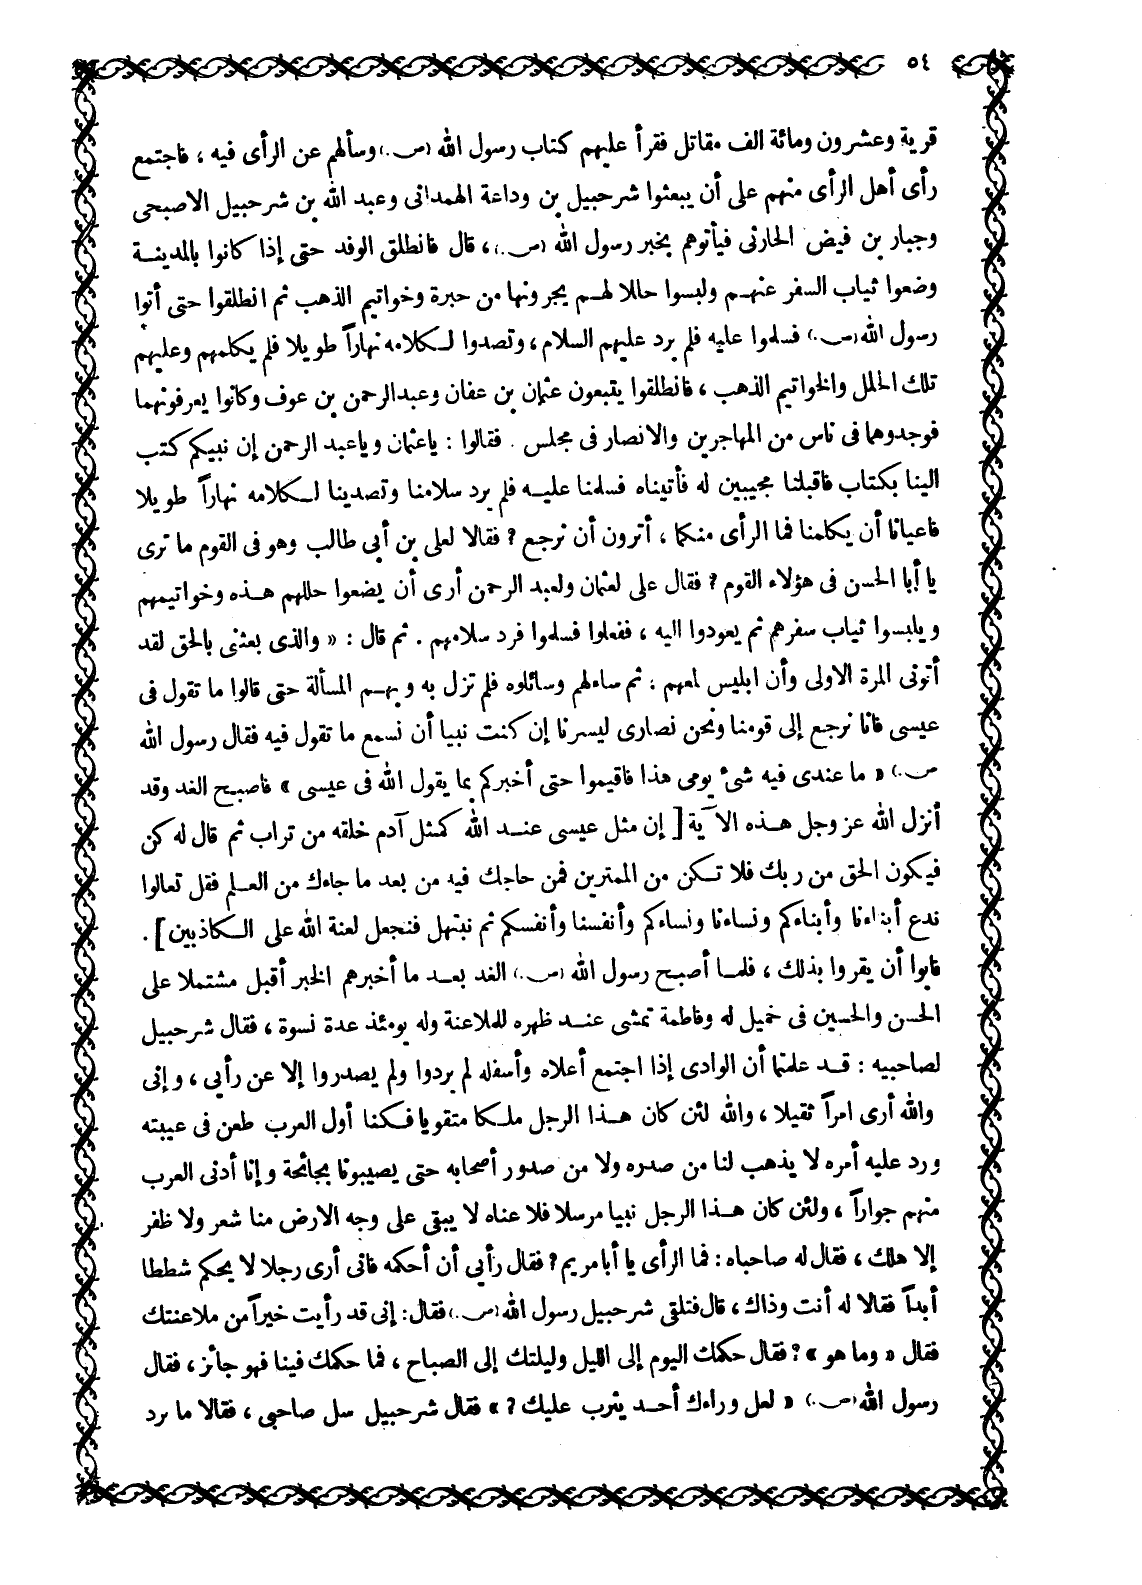 ٥٤
قرية وعشرون ومائة الف مقاتل فقرأ عليهم كتاب رسول الله (ص.) وسألهم عن الرأى فيه ، فاجتمع
رأى أهل الرأى منهم على أن يبعثوا شرحبيل بن وداعة الهمدانى وعبد الله بن شرحبيل الاصبحى
وجبار بن فيض الحارثى فيأتوهم بخبر رسول الله (ص.)، قال فانطلق الوفد حتى إذا كانوا بالمدينة
وضعوا ثياب السفر عنهم ولبسوا حللا لهم يجرونها من حبرة وخواتيم الذهب ثم انطلقوا حتى أتوا
رسول الله (ص.) فسلموا عليه فلم يرد عليهم السلام ، وتصدوا لكلامه نهاراً طويلا فلم يكلمهم وعليهم
تلك الحلل والخواتيم الذهب ، فانطلقوا يتبعون عثمان بن عفان وعبدالرحمن بن عوف وكانوا يعرفونهما
فوجدوهما فى ناس من المهاجرين والانصار فى مجلس . فقالوا : ياعثمان وياعبد الرحمن إن نبيكم كتب
الينا بكتاب فاقبلنا مجيبين له فأتيناه فسلمنا عليه فلم يرد سلامنا وتصدينا لكلامه نهاراً طويلا
فاعيانا أن يكلمنا فما الرأى منكما ، أترون أن نرجع ? فقالا لعلى بن أبى طالب وهو فى القوم ما ترى
يا أبا الحسن فى هؤلاء القوم ? فقال على لعثمان ولعبد الرحمن أرى أن يضعوا حللهم هذه وخواتيمهم
ويلبسوا ثياب سفرهم ثم يعودوا اليه ، ففعلوا فسلموا فرد سلامهم . ثم قال : « والذى بعثنى بالحق لقد
أتونى المرة الاولى وأن ابليس لمعهم : ثم ساءلهم وسائلوه فلم تزل به وبهم المسألة حتى قالوا ما تقول فى
عيسى فانا نرجع إلى قومنا ونحن نصارى ليسرنا إن كنت نبيا أن نسمع ما تقول فيه فقال رسول الله
ص.) « ما عندى فيه شىء يومى هذا فاقيموا حتى أخبركم بما يقول الله فى عيسى » فاصبح الغد وقد
أنزل الله عز وجل هذه الآية [ إن مثل عيسى عند الله كمثل آدم خلقه من تراب ثم قال له كن
فيكون الحق من ربك فلا تكن من الممترين فمن حاجك فيه من بعد ما جاءك من العلم فقل تعالوا
ندع أبناءنا وأبناءكم ونساءنا ونساءكم وأنفسنا وأنفسكم ثم نبتهل فنجعل لعنة الله على الكاذبين ] .
فابوا أن يقروا بذلك ، فلما أصبح رسول الله (ص.) الغد بعد ما أخبرهم الخبر أقبل مشتملا على
الحسن والحسين فى خميل له وفاطمة تمشى عند ظهره للملاعنة وله يومئذ عدة نسوة ، فقال شرحبيل
لصاحبيه : قد علمتما أن الوادى إذا اجتمع أعلاه وأسفله لم يردوا ولم يصدروا إلا عن رأيى ، وإنى
والله أرى امراً ثقيلا ، والله لئن كان هذا الرجل ملكا متقويا فكنا أول العرب طعن فى عيبته
ورد عليه أمره لا يذهب لنا من صدره ولا من صدور أصحابه حتى يصيبونا بجائحة وإنا أدنى العرب
منهم جواراً ، ولئن كان هذا الرجل نبيا مرسلا فلاعناه لا يبقى على وجه الارض منا شعر ولا ظفر
إلا هلك ، فقال له صاحباه : فما الرأى يا أبا مريم? فقال رأيى أن أحكمه فانى أرى رجلا لا يحكم شططا
أبداً فقالا له أنت وذاك ، قال فتلقى شرحبيل رسول الله (ص.) فقال: إنى قد رأيت خيراً من ملاعنتك
فقال « وما هو » ? فقال حكمك اليوم إلى الليل وليلتك إلى الصباح ، فما حكمك فينا فهو جائز ، فقال
رسول الله (ص.) « لعل وراءك أحد يثرب عليك ? » فقال شرحبيل سل صاحبى ، فقالا ما يرد